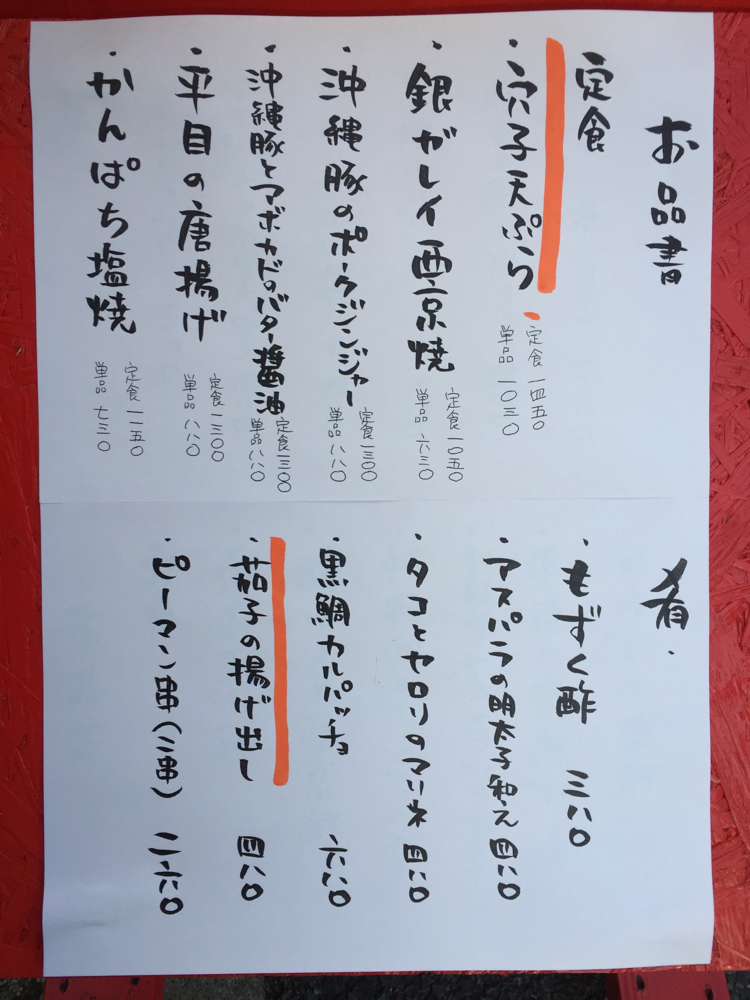 お品書
定食
・穴子天ぷら
定食 一四五〇
単品 一〇三〇
・銀ガレイ西京焼
定食 一〇五〇
単品 六三〇
・沖縄豚のポークジンジャー
定食 一三〇〇
単品 八八〇
・沖縄豚とアボカドのバター醤油
定食 一三〇〇
単品 八八〇
・平目の唐揚げ
定食 一三〇〇
単品 八八〇
・かんぱち塩焼
定食 一一五〇
単品 七三〇
肴・
・もずく酢 三八〇
・アスパラの明太子和え 四八〇
・タコとセロリのマリネ 四八〇
・黒鯛カルパッチョ 六八〇
・茄子の揚げ出し 四八〇
・ピーマン串(二串) 二六〇